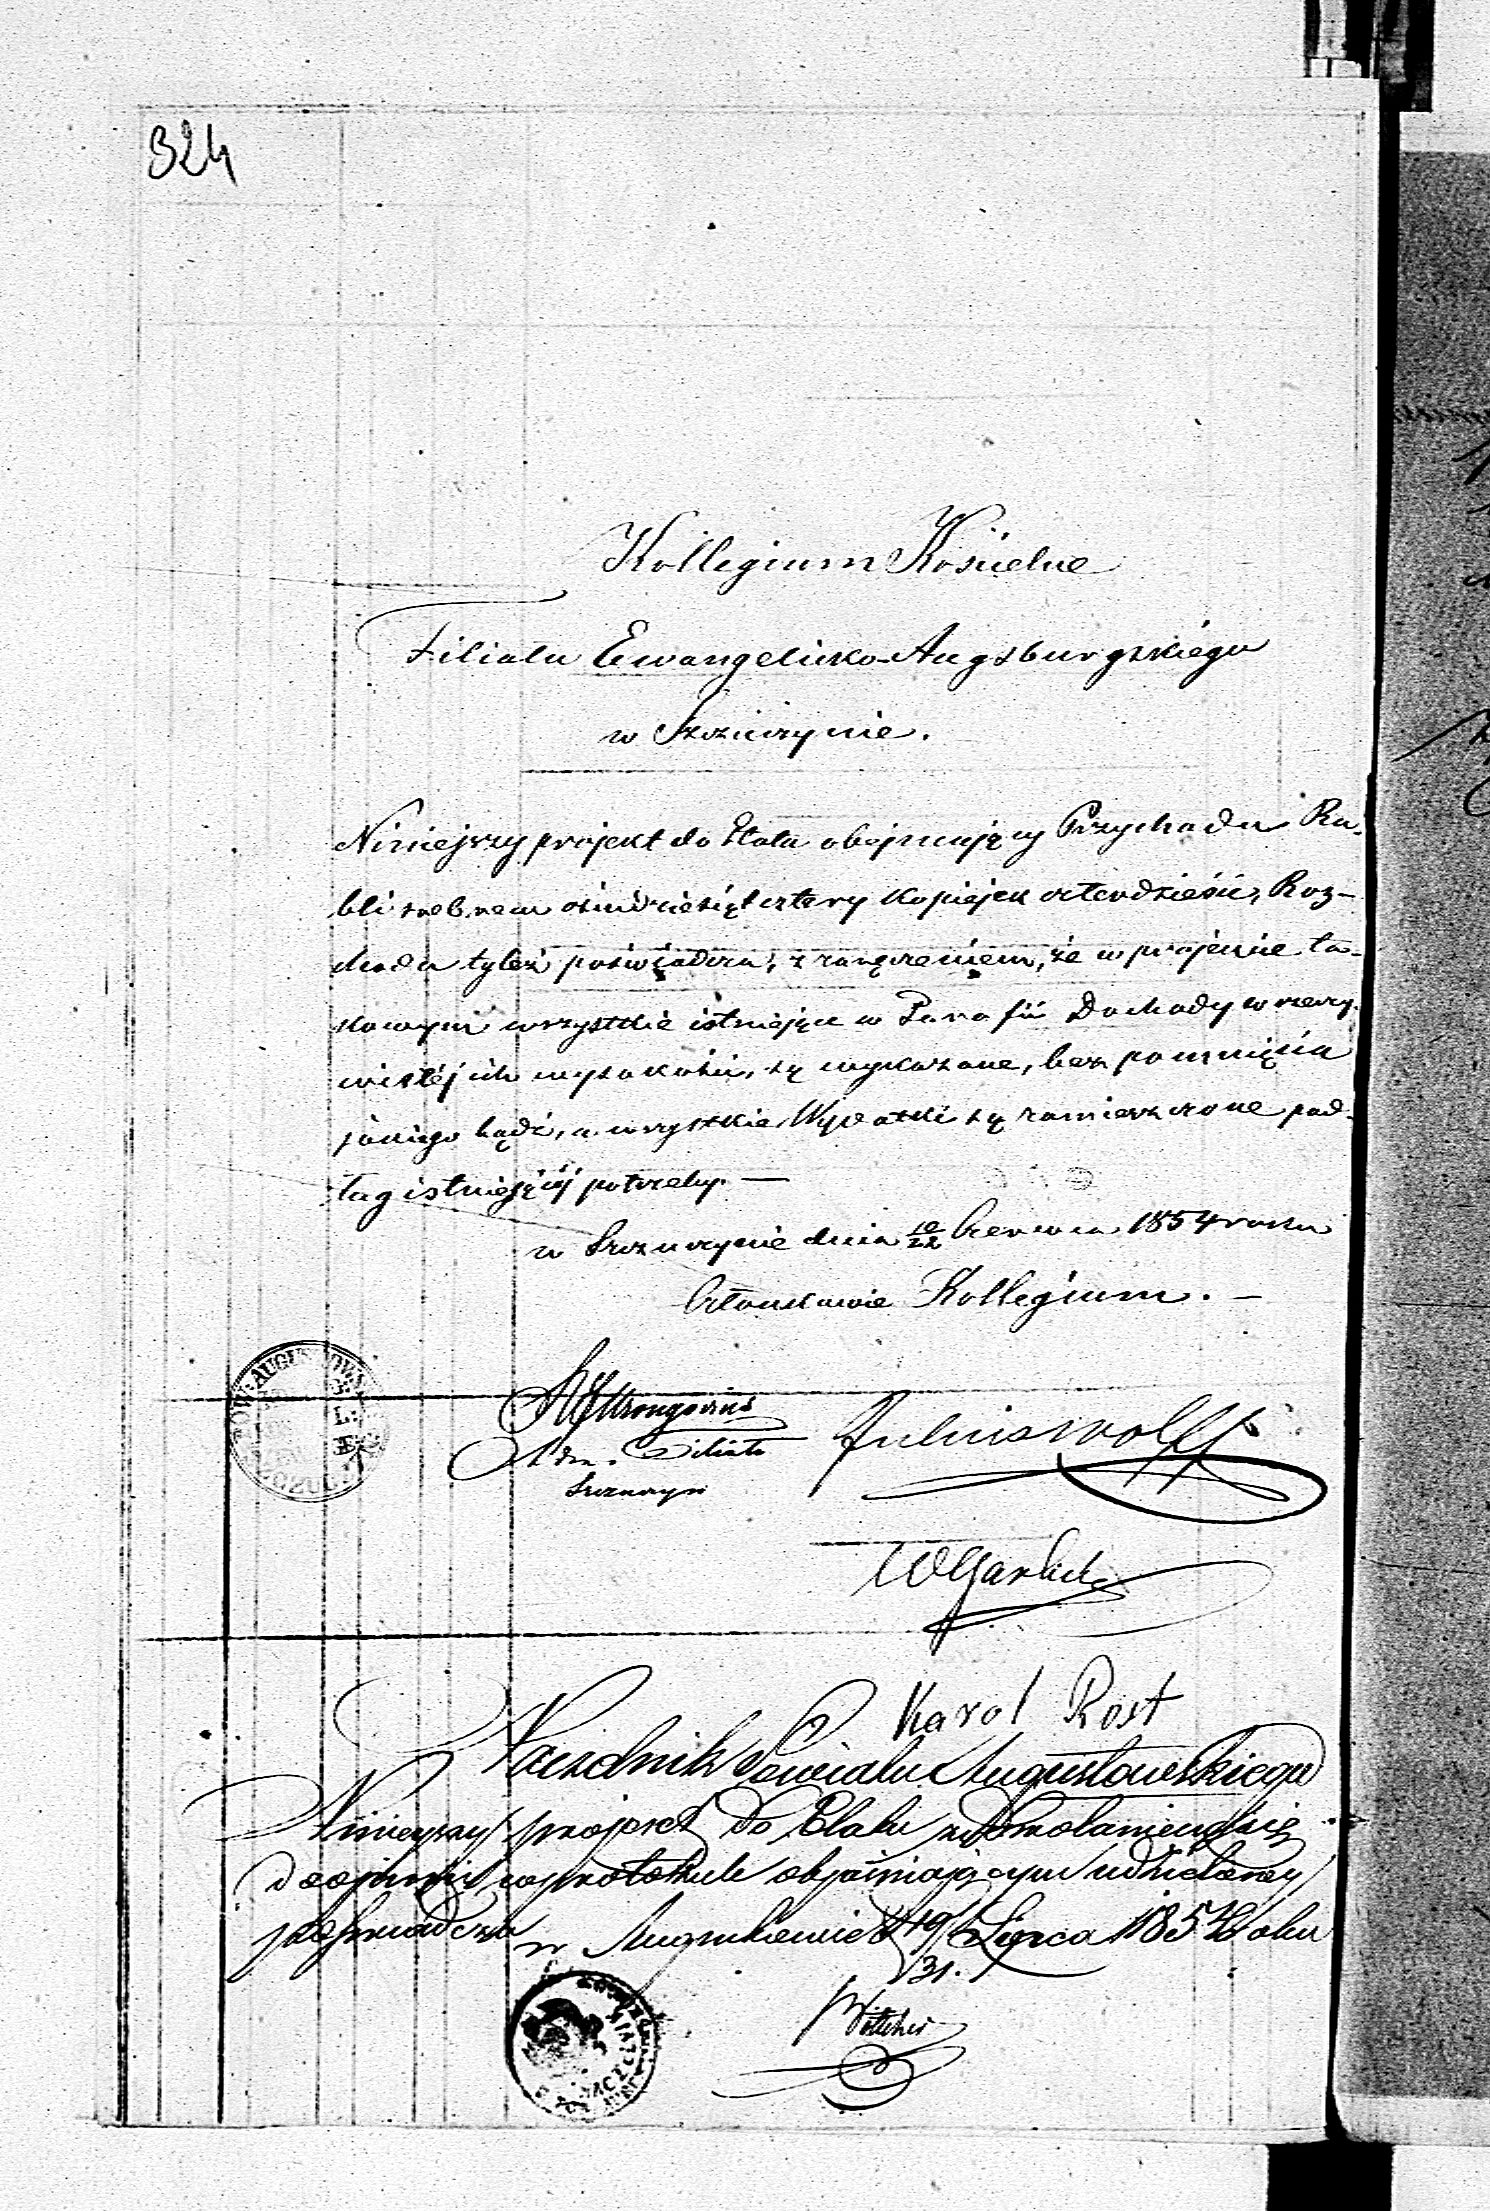 324
Kollegium Kościelne
Filiału Ewangelicko-Augsburgskiego
w Szczuczynie.
Niniejszy projekt do Etatu obejmujący Przychodu Ru-
bli srebrem ośmdziesiąt cztery kopiejek czterdzieści, Roz-
chodu tyleż poświadcza, z zaręczeniem, że w projekcie ta-
kowym wszystkie istniejące w Parafii Dochody w rzeczy-
wistéj ich wysokości, są wykazane, bez pominięcia
jakiego bądź, a wszystkie Wydatki są zamieszczone pod-
ług istniejącéj potrzeby. —
w Szczuczynie dnia 10/22 Czerwca 1854 roku
Członkowie Kollegium. —
Mrongovius
Adm. Filiału
Szczuczyn
Julius Wolff
Karol Rost
Naczelnik Powiatu Augustowskiego
Niniejszy projekt do Etatu z odwołaniem się
do opinii w protokule objaśniającym udzieloney
poświadcza w Augustowie d 19/31. Lipca 1854 Roku